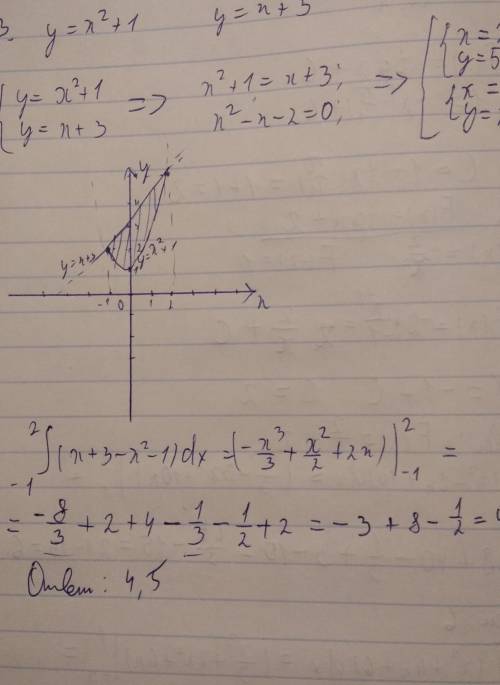 3. y = x² + 1 y = x + 3
{ y = x² + 1 => x² + 1 = x + 3; => [ { x = 
{ y = x + 3 x² - x - 2 = 0; { y = 5
{ x =
{ y =
y
y = x + 3
y = x² + 1
-1 0 1 2 x
₋₁²∫(x + 3 - x² - 1)dx = (-x³/3 + x²/2 + 2x)|₋₁² =
= -8/3 + 2 + 4 - 1/3 - 1/2 + 2 = -3 + 8 - 1/2 = 4
Ответ: 4,5